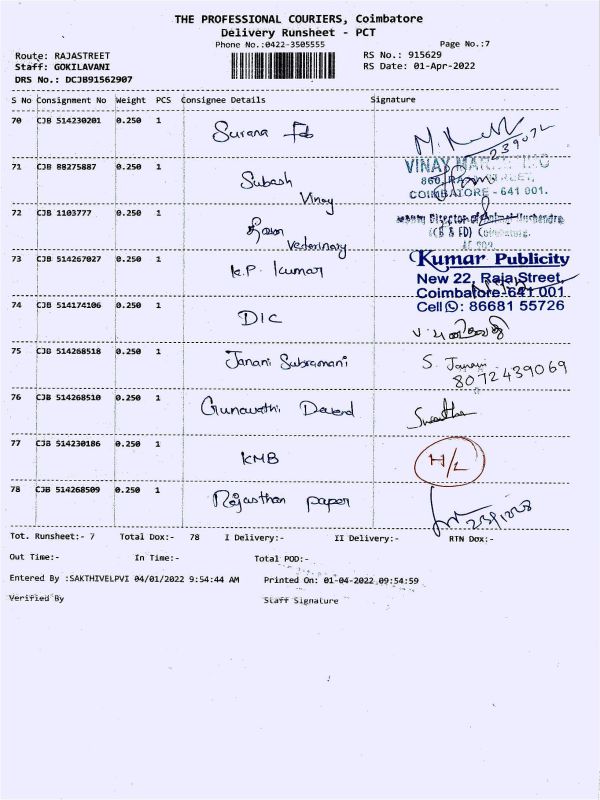 THE PROFESSIONAL COURIERS, Coimbatore
Delivery Runsheet - PCT
Phone No.:0422-3505555
Page No.:7
Route: RAJASTREET
RS No.: 915629
Staff: GOKILAVANI
RS Date: 01-Apr-2022
DRS No.: DCJB91562907
S No Consignment No Weight PCS Consignee Details Signature
70 CJB 514230201 0.250 1 Surana
71 CJB 88275887 0.250 1 Subash VINAY
860, STREET,
Vinay COIMBATORE - 641 001.
72 CJB 1103777 0.250 1 Deputy Director of Animal Husbandry
Veterinary (CB & FD) Coimbatore.
73 CJB 514267027 0.250 1 K.P. Kumar Kumar Publicity
New 22, Raja Street,
Coimbatore-641 001
Cell: 86681 55726
74 CJB 514174106 0.250 1 DIC
75 CJB 514268518 0.250 1 Janani Subramani S. Janani
8072439069
76 CJB 514268510 0.250 1 Gunavathi
77 CJB 514230186 0.250 1 KMB H/L
78 CJB 514268509 0.250 1 Rajasthan paper
Tot. Runsheet:- 7 Total Dox:- 78 I Delivery:- II Delivery:- RTN Dox:-
Out Time:- In Time:- Total POD:-
Entered By :SAKTHIVELPVI 04/01/2022 9:54:44 AM Printed On: 01-04-2022 09:54:59
Verified By Staff Signature